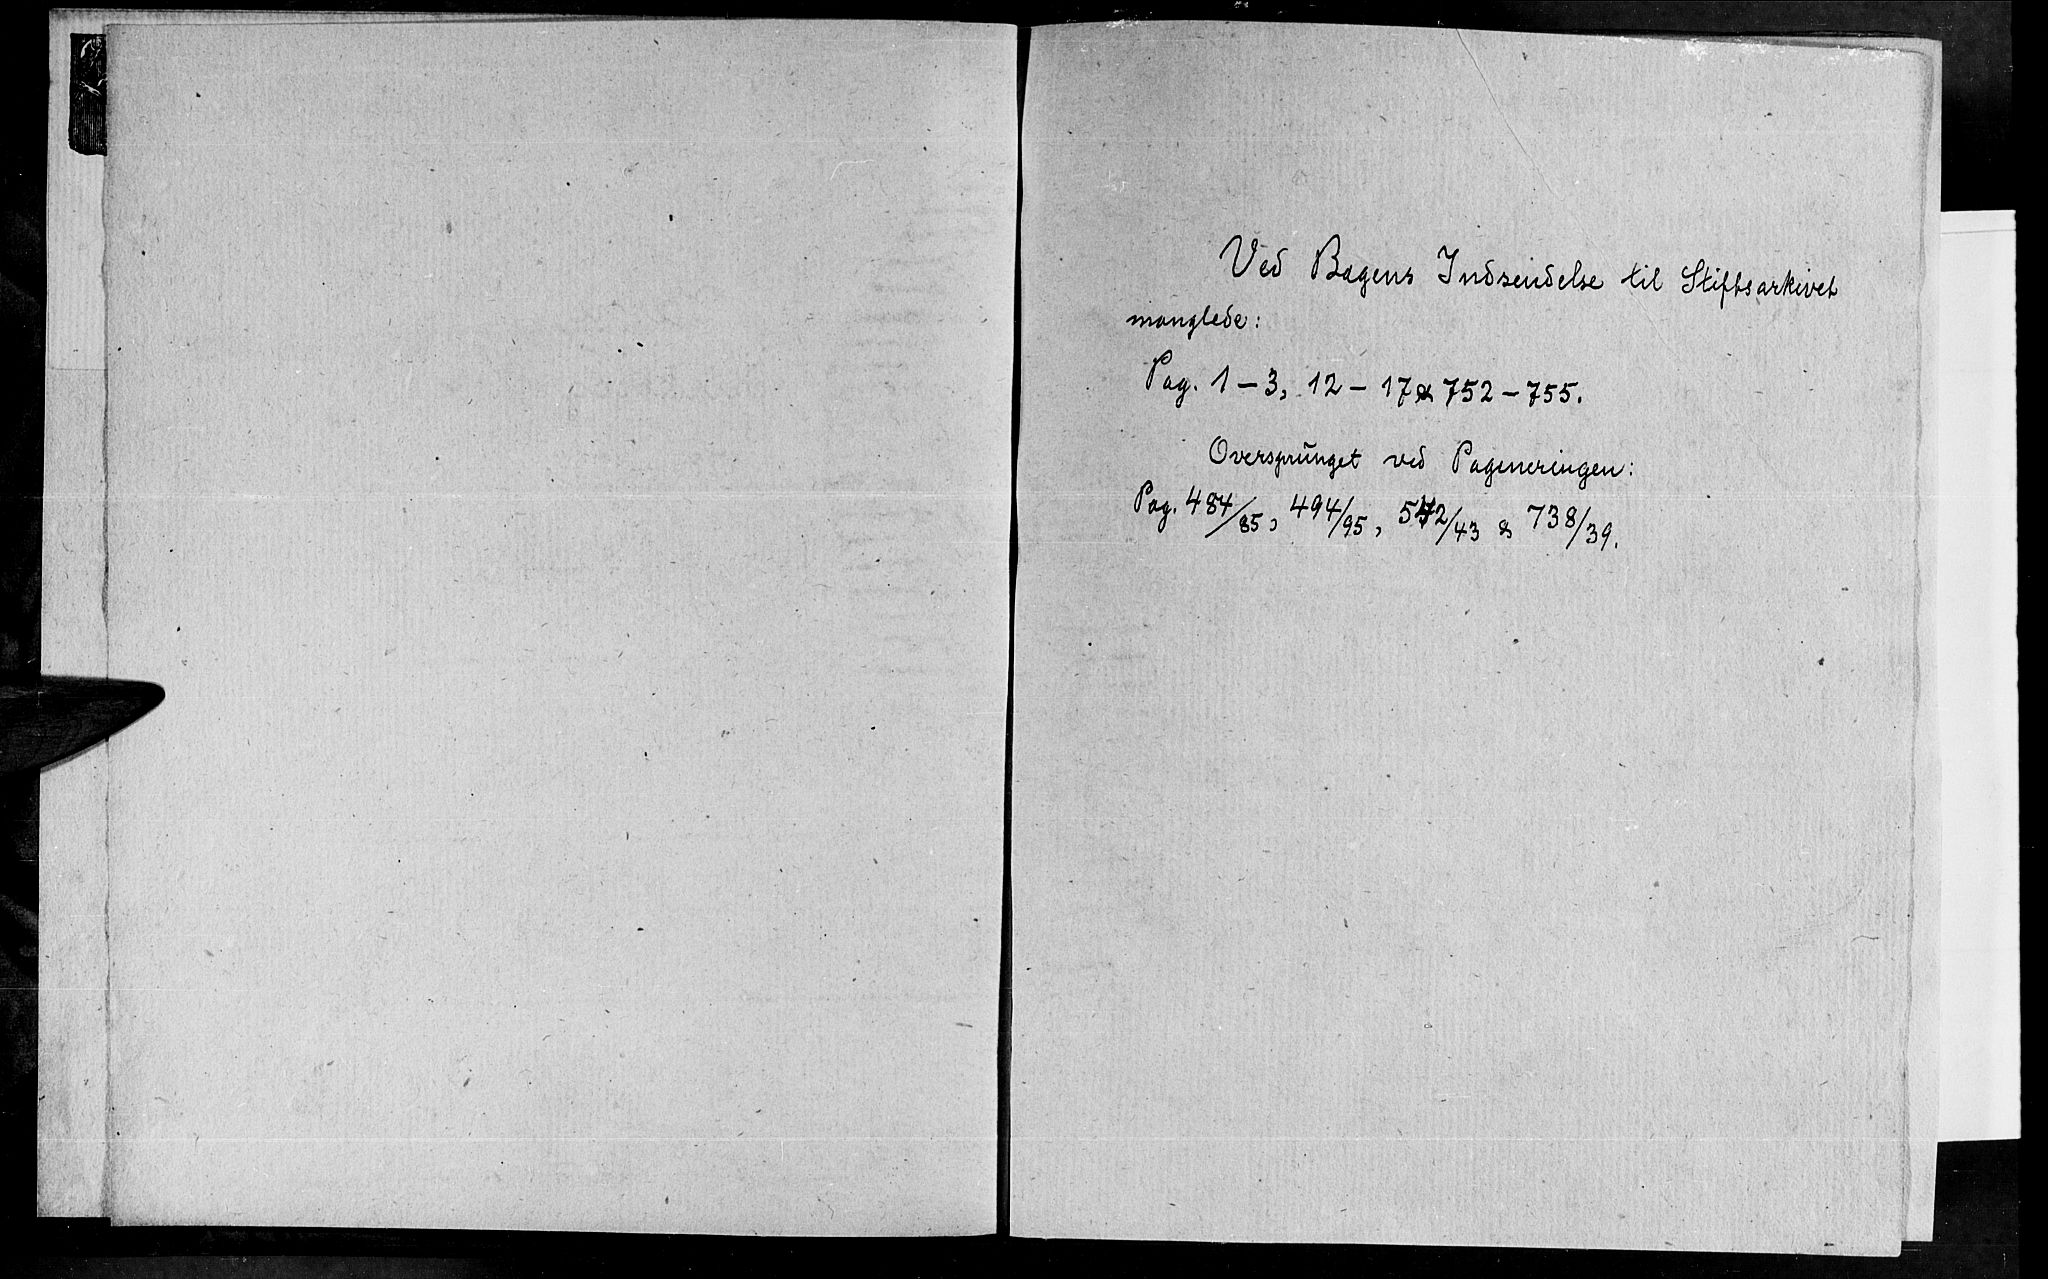 Ved Bogens Indsendelse til Stiftsarkivet
manglede:
Pag. 1-3, 12-17 & 752-755.
Oversprunget ved Pagineringen:
Pag. 484/85, 494/95, 542/43 & 738/39.